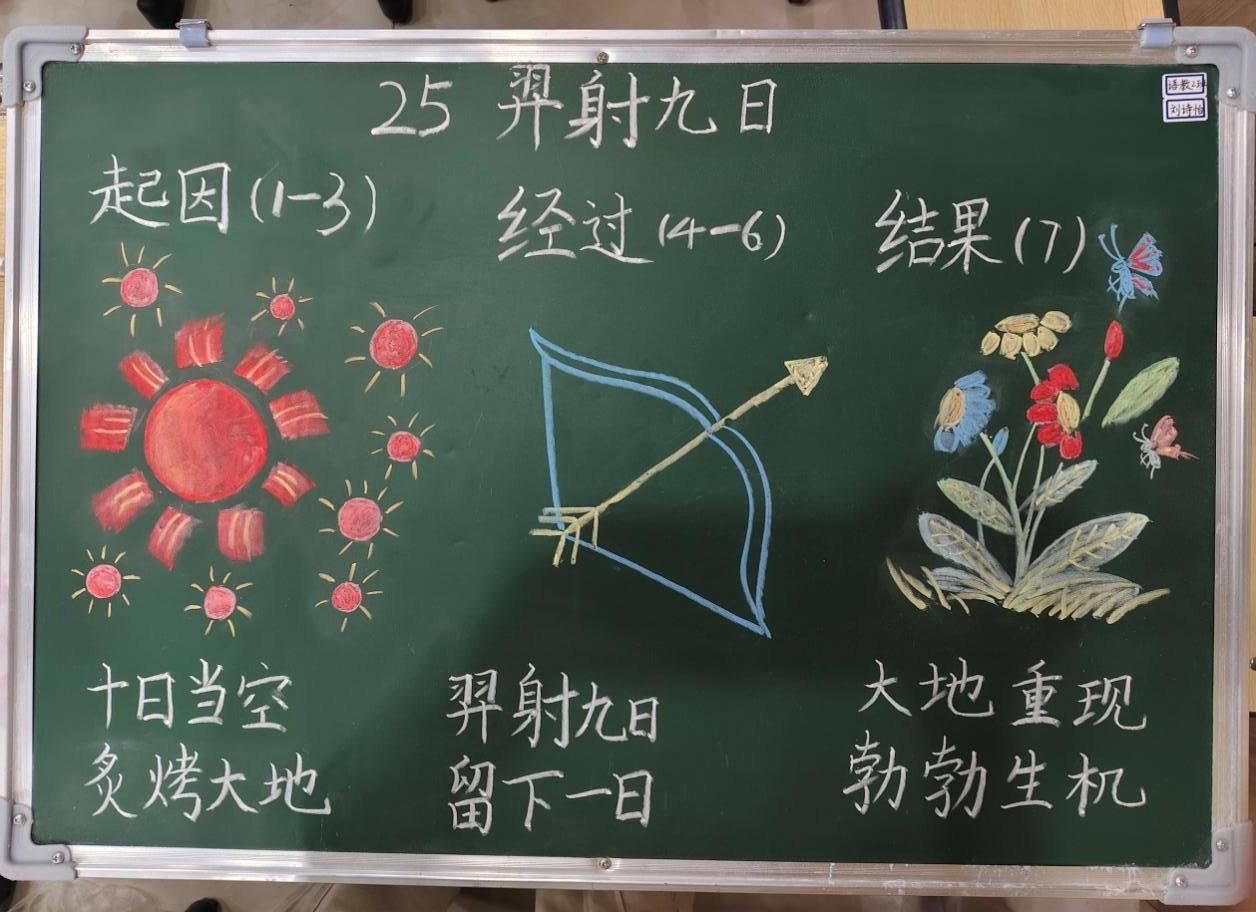 25 羿射九日
语数2班
刘诗怡
起因(1-3)
经过(4-6)
结果(7)
十日当空
炙烤大地
羿射九日
留下一日
大地重现
勃勃生机